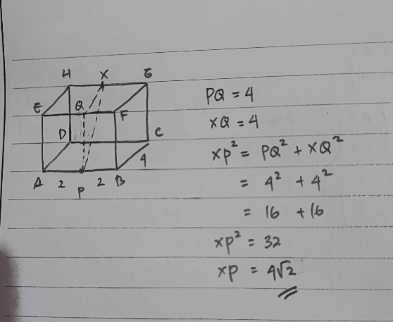 H X G
E Q F
D C
4
A 2 P 2 B
PQ = 4
XQ = 4
XP² = PQ² + XQ²
= 4² + 4²
= 16 + 16
XP² = 32
XP = 4√2